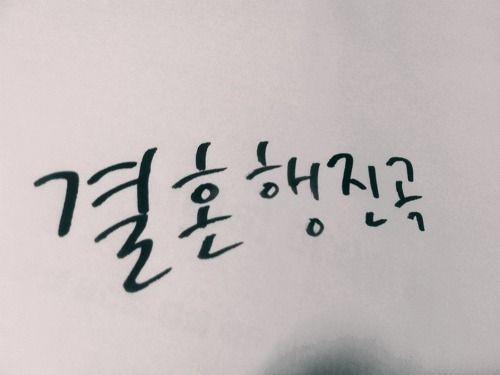 결혼행진곡